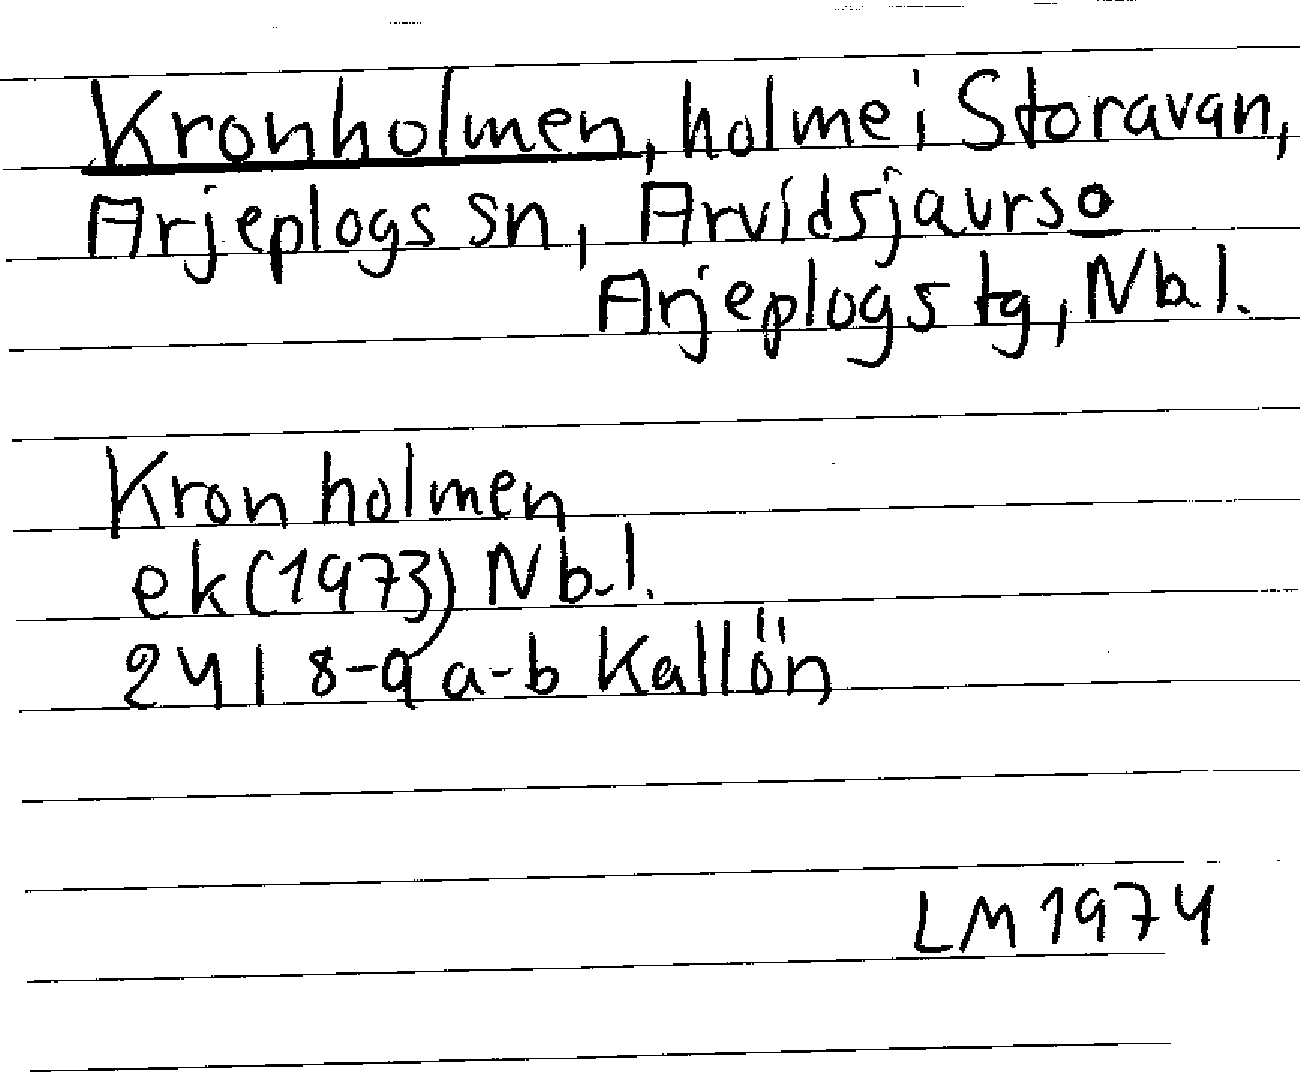 Kronholmen, holme i Storavan,
Arjeplogs sn, Arvidsjaurs o
Arjeplogs tg, Nb l.
Kronholmen
ek (1973) Nb.l.
24 I 8-9 a-b Kallön
LM 1974